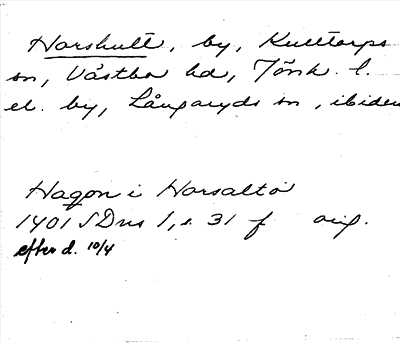 Horshult, by, Kulltorps
sn, Västbo hd, Jönk. l.
el. by, Långaryds sn, ibidem
Haqon i Horsalto
1401 SDns 1, s. 31 f orig.
efter d. 10/4